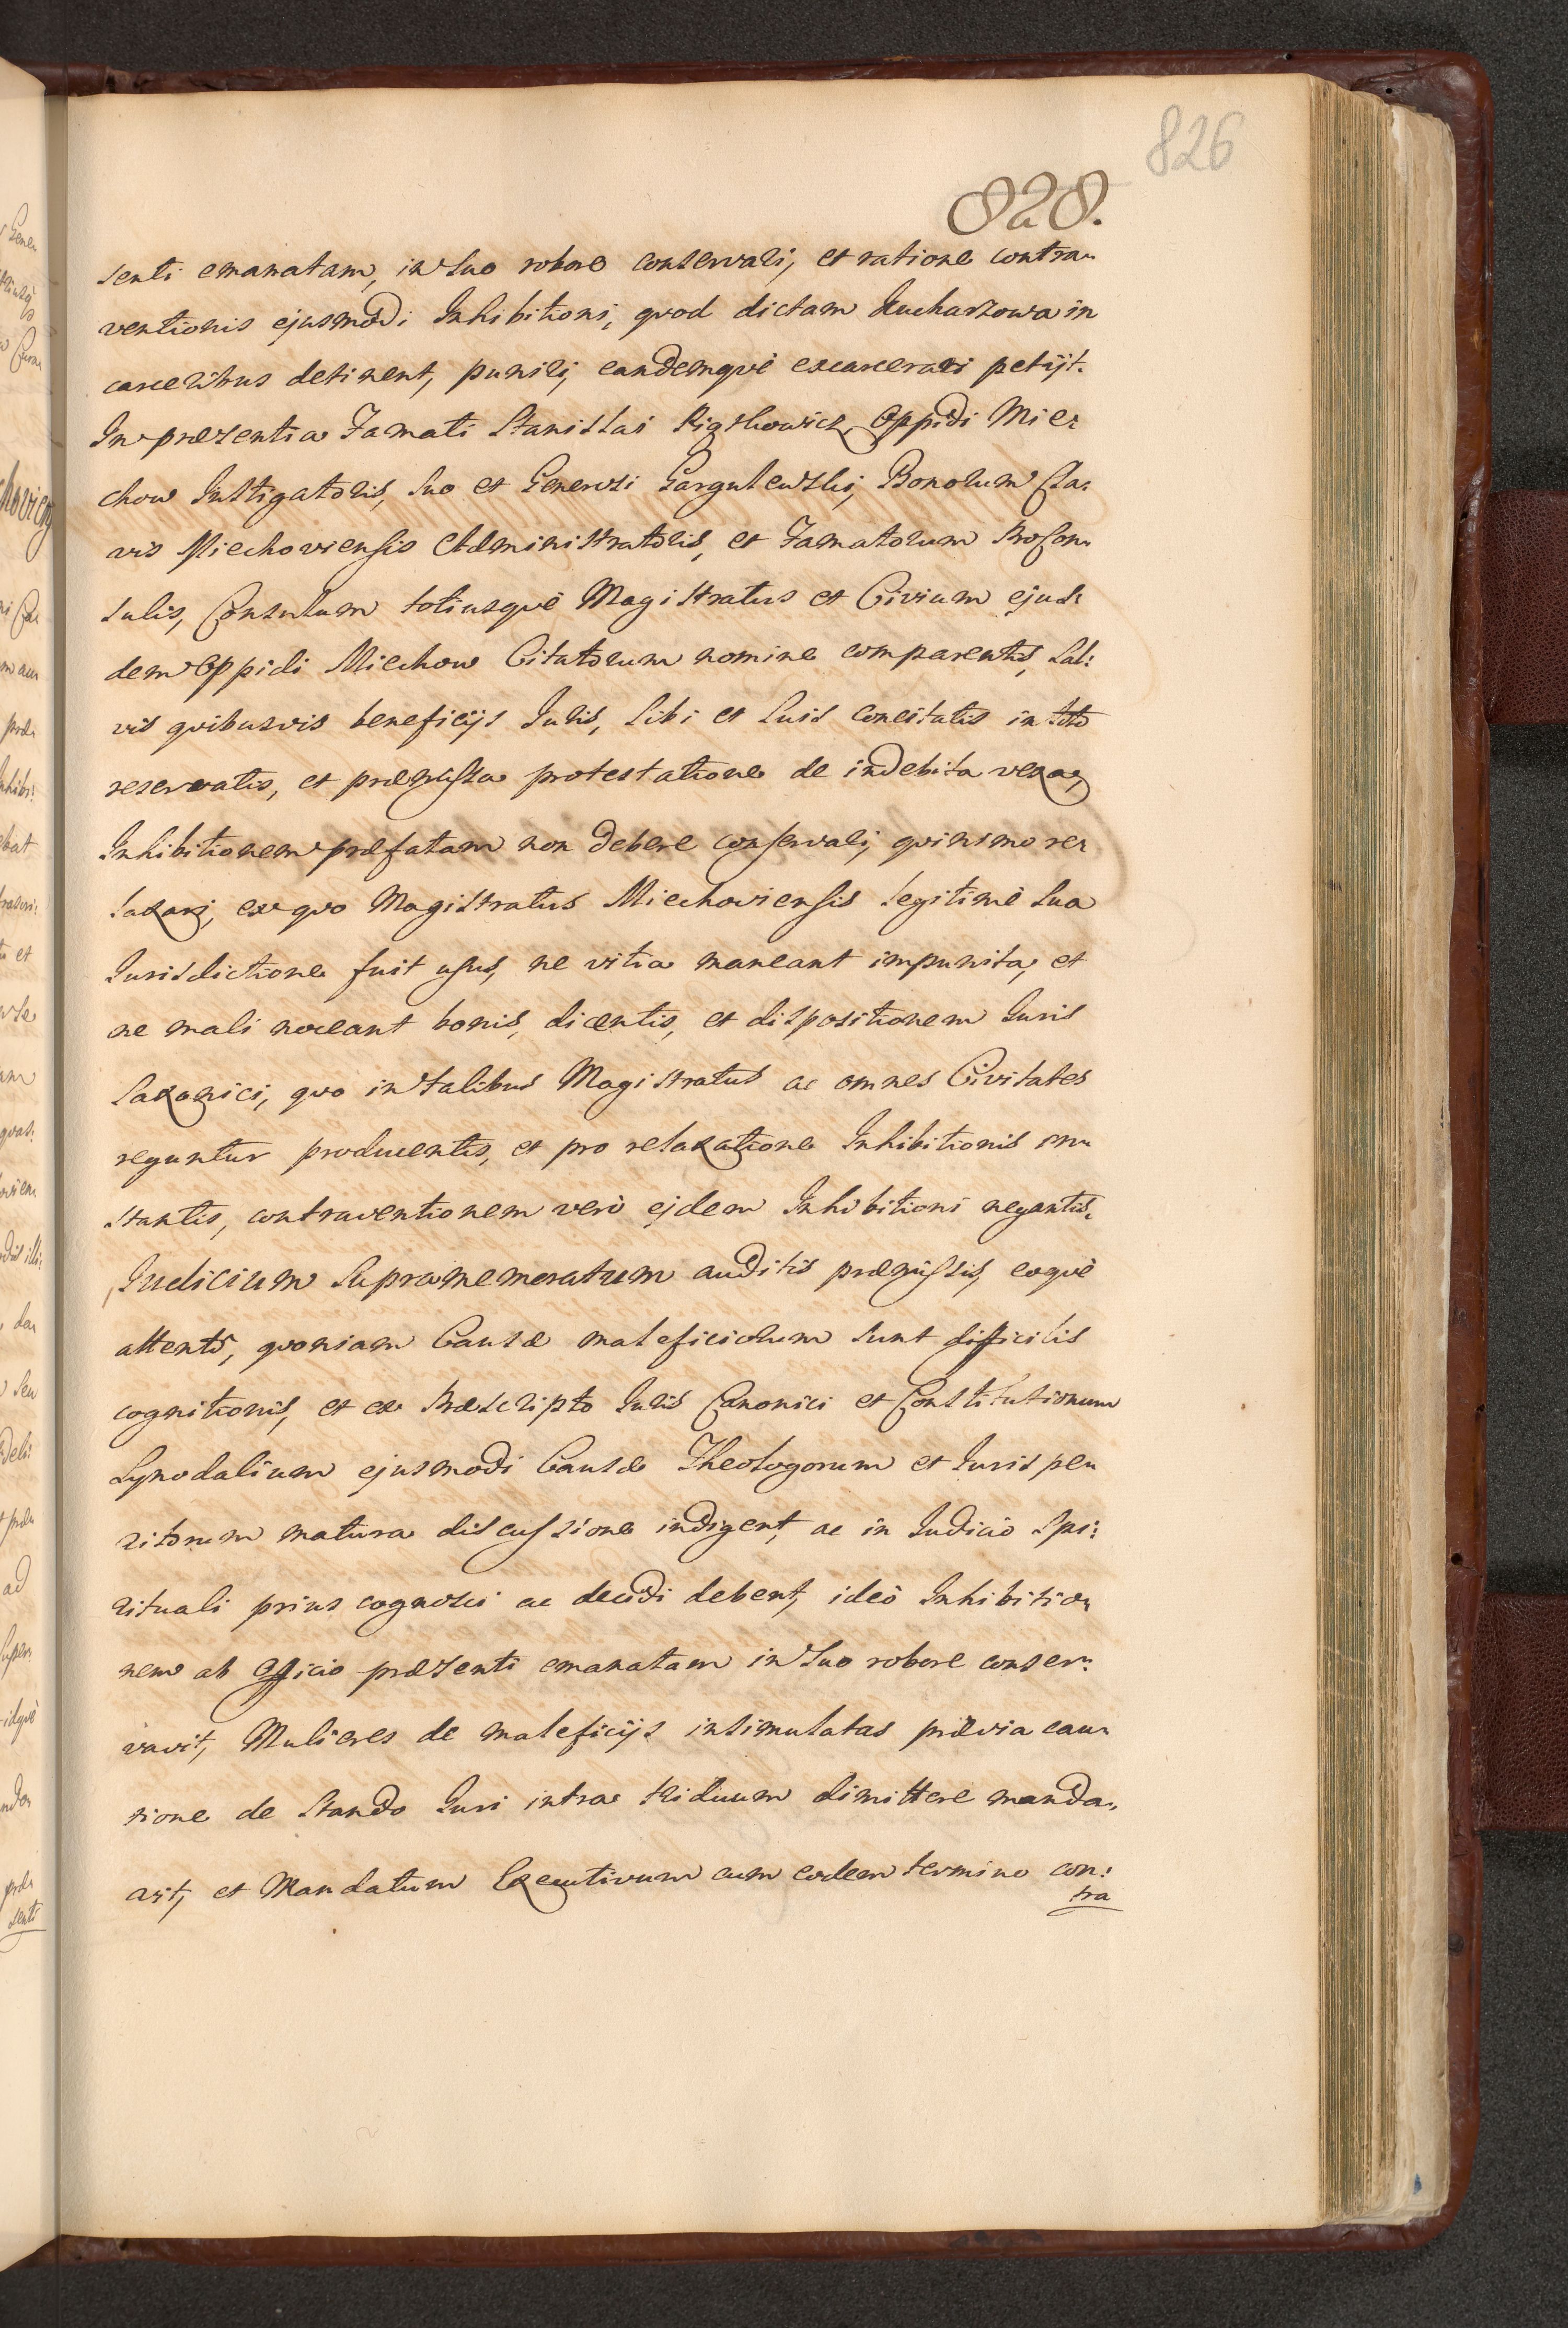 826
828.
senti emanatam, in suo robore conservari, et ratione contra-
ventionis ejusmodi Inhibitioni, quod dictam Kucharzowa in
carceribus detinent, puniri, eandemquè excarcerari petijt.
In præsentia Famati Stanislai Oppidi Mie-
chow Instigatoris, suo et Generosi Bonorum Cla-
vis Miechoviensis Administratoris, et Famatorum Procon-
sulis, Consulum totiusquè Magistratus et Civium ejus-
dem Oppidi Miechow Citatorum nomine comparentis, Sal:
vis quibusvis beneficijs Juris, Sibi et Suis concitatis in toto
reservatis, et præmissa protestatione de indebita vexa,
Inhibitionem præfatam non debere conservari, quinimo re-
laxari, ex quo Magistratus Miechoviensis legitimè sua
Jurisdictione fuit usus, ne vitia maneant impunita, et
ne mali noceant bonis, dicentis, et dispositionem Juris
Saxonici, quo in talibus Magistratus ac omnes Civitates
reguntur producentis, et pro relaxatione Inhibitionis in-
stantis, contraventionem verò ejdem Inhibitioni negantis.
Judicium Supramemoratum auditis præmissis, eoquè
attento, quoniam Causæ maleficiorum sunt difficilis
cognitionis, et ex Præscripto Juris Canonici et Constitutionum
Synodalium ejusmodi Causæ Theologorum et Juris pe-
ritorum matura discussione indigent, ac in Judicio Spi:
rituali prius cognosci ac decidi debent, ideò Inhibitio-
nem ab Officio præsenti emanatam in suo robore conser-
vavit, Mulieres de maleficijs insimulatas prævia cau-
tione de stando Juri intra triduum dimittere manda-
vit, et Mandatum Executivum cum eodem termino con:
tra